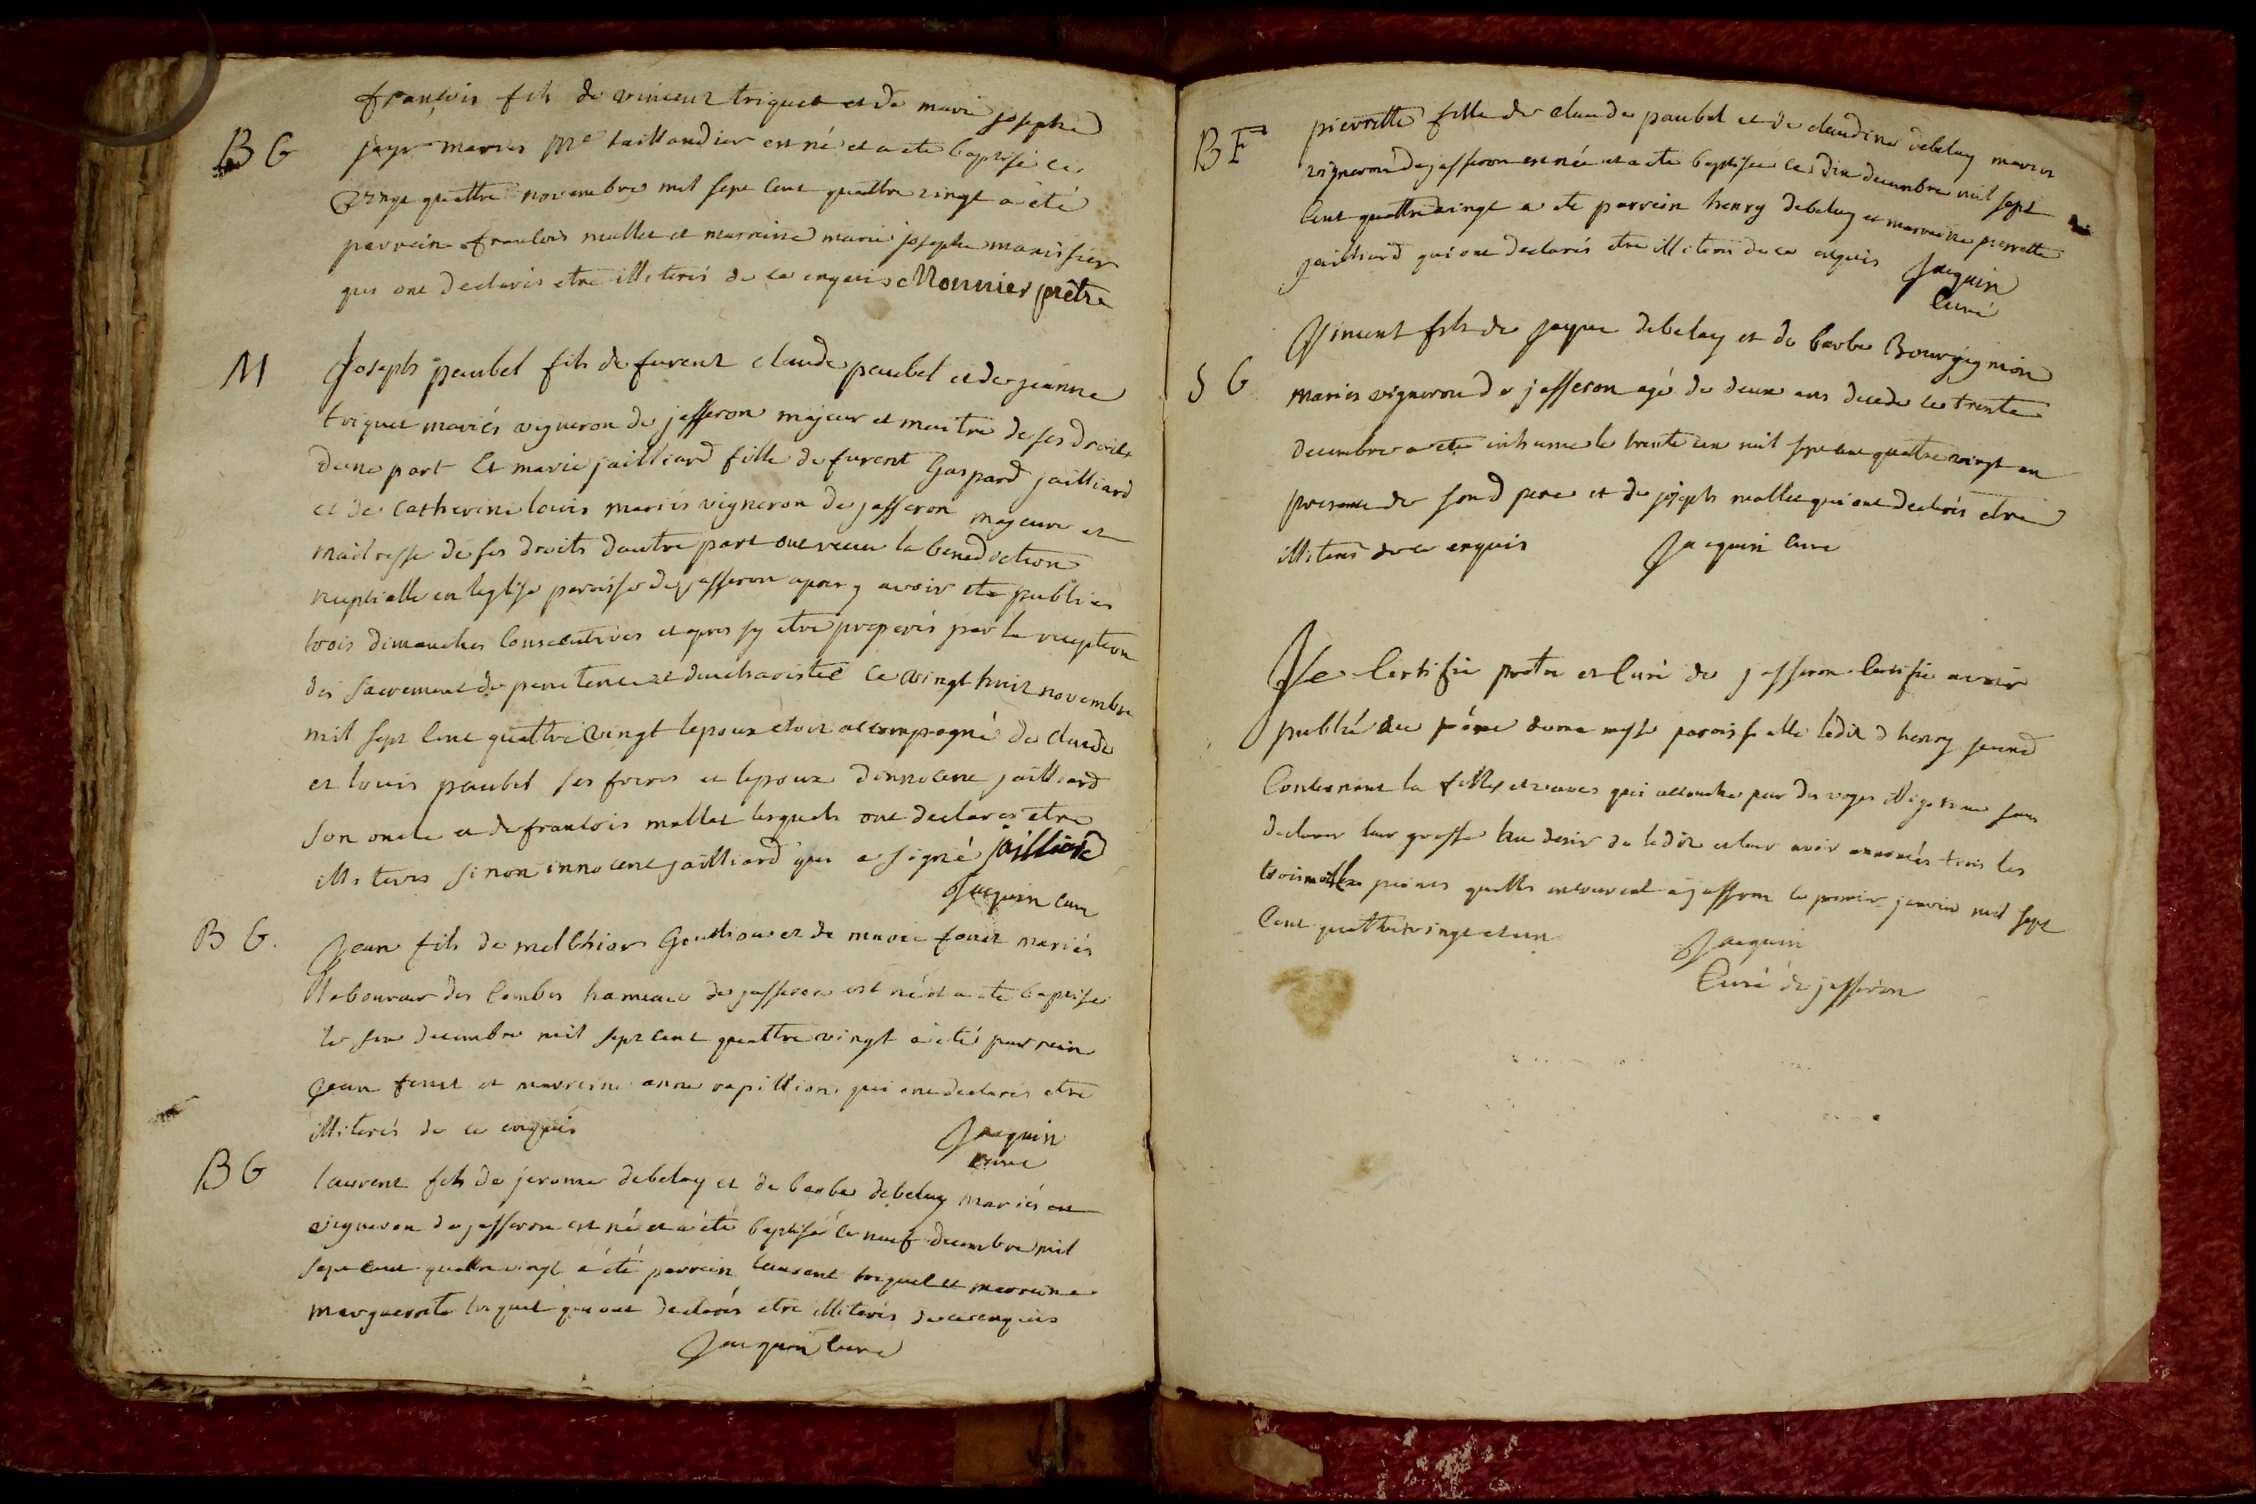 françois fils de vincent triquet et de marie josephe
B G
jayr mariés Me taillandier est né et a ete baptisé ce
vingt quattre novembre mil sept cent quattre vingt a été
parrein francois mallet et marreine marie josephe
qui ont declarés etre illiterés de ce enquis Monnier prêtre
M
Joseph paubel fils de furent claude paubel et de jeanne
triquet mariés vigneron de jasseron majeur et maitre de ses droits
dune part Et marie jailliard fille de furent Gaspard jailliard
et de Catherine louis mariés vigneron de jasseron majeure et
maitresse de ses droits dautre part ont receu la benediction
nuptialle en leglise paroisse de jasseron apres y avoir ete publies
trois dimanches Consecutives et apres sy etre preparés par la reception
des sacrement de penitence et deucharistie Ce vingt huit novembre
mil sept Cent quattre vingt lepoux etoit accompagné de claude
et louis paubel ses freres et lepouse dinnocent jailliard
son oncle et de francois mallet lesquels ont declares etre
illiteres sinon innocent jailliard qui a signé jailliard
Jacquin cure
B G.
Jean fils de melchior et de marie fouet mariés
laboureur des Combes hameau de jasseron est né et a ete baptise
le six decembre mil sept cent quattre vingt a eté parrein
jean fouet et marreine anne rapillion qui ont declarés etre
illiterés de ce enquis Jacquin
curé
B G
laurent fils de jerome debelay et de barbe debelay mariés
vigneron de jasseron est né et a été baptisé ce neuf decembre mil
sept cent quattre vingt a été parrein laurent triquet et marreine
marguerite triquet qui ont declarés etre illiterés de ce enquis
Jacquin curé
B F
pierrette fille de claude paubel et de claudine debelay mariés
vigneron de jasseron est née et a ete baptisée ce dix decembre mil sept
Cent quattre vingt a ete parrein henry debelay et marreine pierrette
jailliard qui ont declarés etre illiterés de ce enquis Jacquin
Curé
Vincent fils de jaque debelay et de barbe Bourgignion
S G
mariés vigneron de jasseron agé de deux ans decede ce trente
decembre a ete inhume le trente un mil sept cent quattre vingt en
presence de sond pere et de joseph mallet qui ont declarés etre
illiterés de ce enquis Jacquin cure
Je Certifie pretre et Curé de jasseron Certifie avoir
publié au prône de ma messe paroissialle ledit d henry second
Concernant la filles et veuves qui accouche par des voyes illegitime sans
declarer leur grosse au desir de ledit et leur avoir annoncés tous les
trois mois les peines quelles encourent a jasseron ce premier janvier mil sept
Cent quattrevingt et un
Jacquin
Curé de jasseron